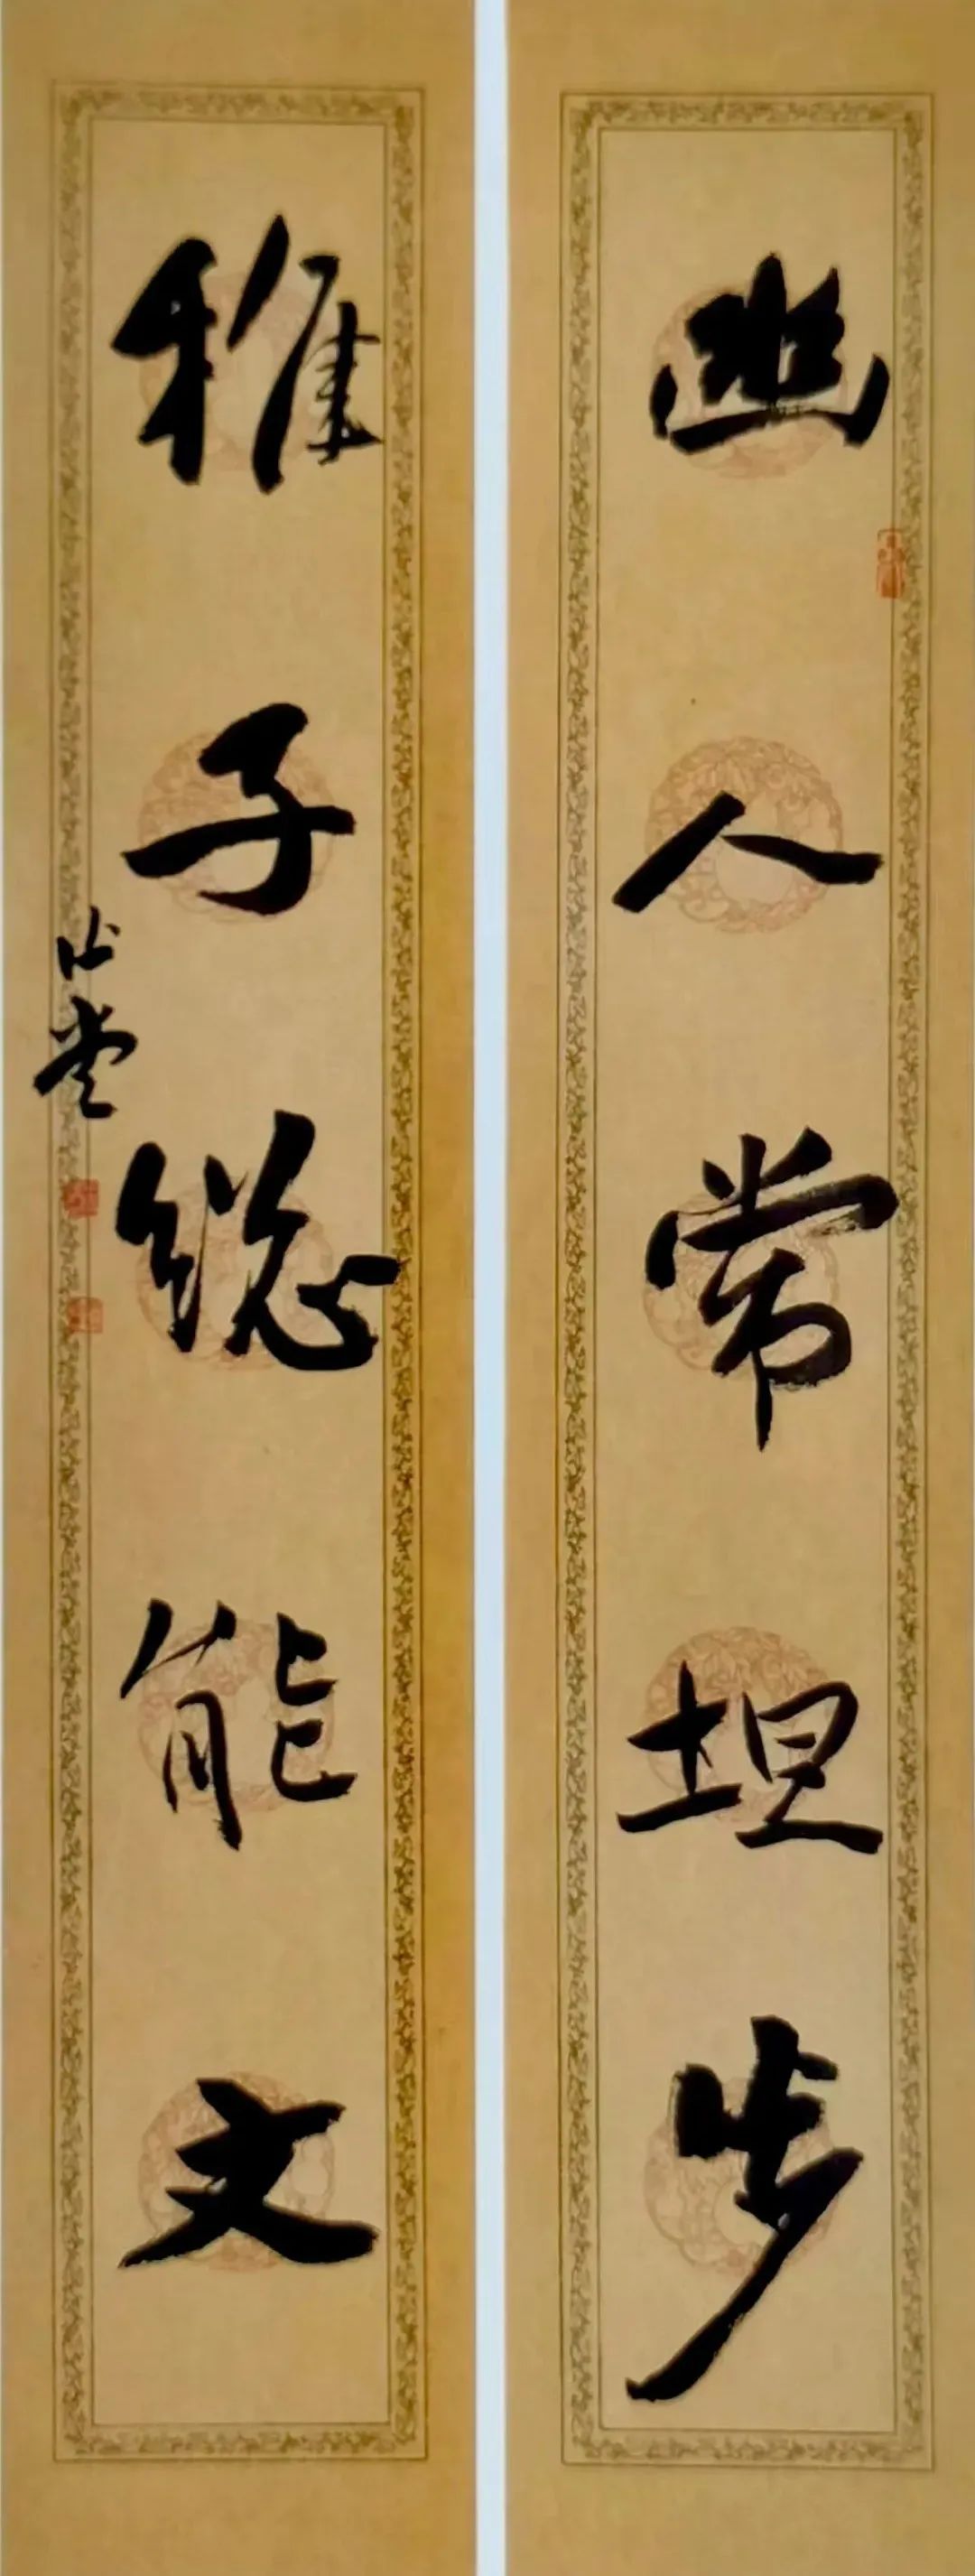 幽人常坦步
稚子總能文